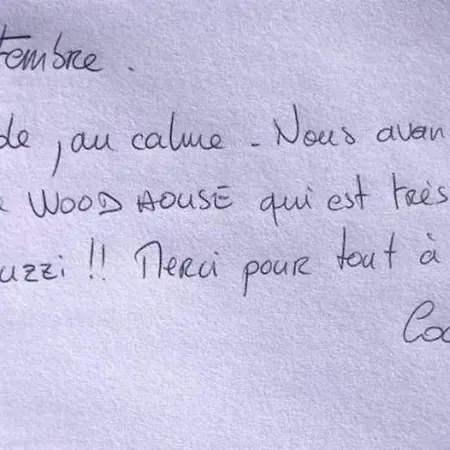 tembre.
de, au calme - Nous avan
WOOD HOUSE qui est très
uzzi !! Merci pour tout à
Coc